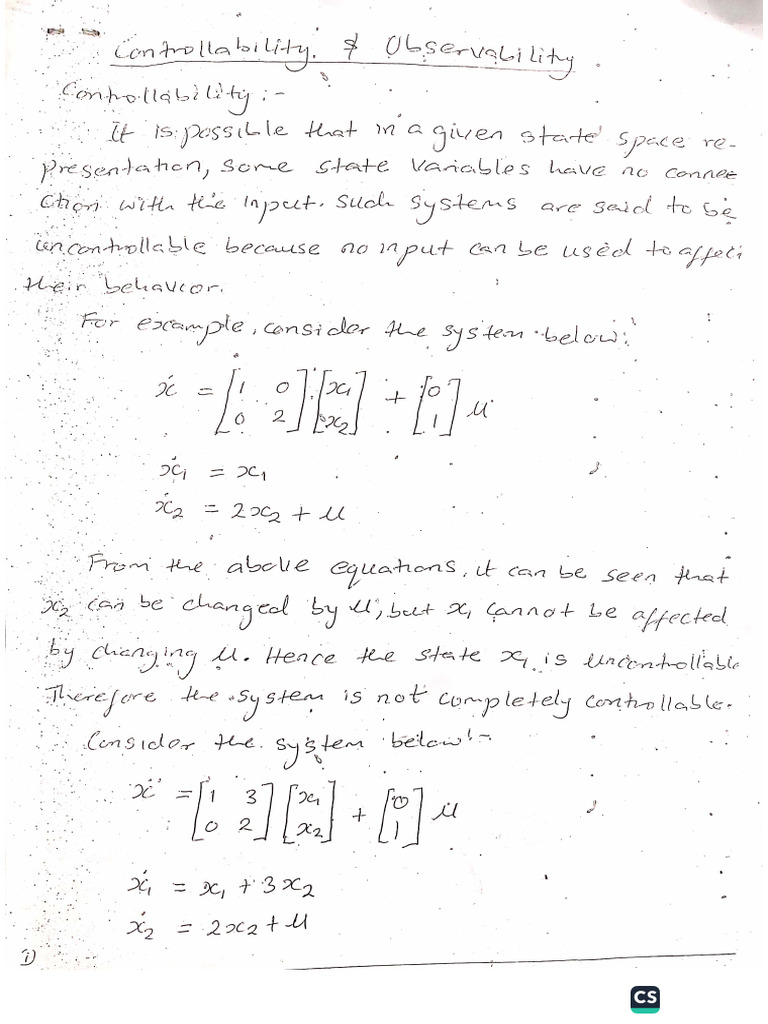 Controllability & Observability
Controllability :-
It is possible that in a given state space re-
presentation, some state variables have no connec
ction with the input. Such systems are said to be
uncontrollable because no input can be used to affect
their behavior.
For example, consider the system below:
ẋ = [1 0; 0 2] [x1; x2] + [0; 1] u
ẋ1 = x1
ẋ2 = 2x2 + u
From the above equations, it can be seen that
x2 can be changed by u, but x1 cannot be affected
by changing u. Hence the state x1 is uncontrollable
Therefore the system is not completely controllable.
Consider the system below:-
ẋ = [1 3; 0 2] [x1; x2] + [0; 1] u
ẋ1 = x1 + 3x2
ẋ2 = 2x2 + u
1)
CS